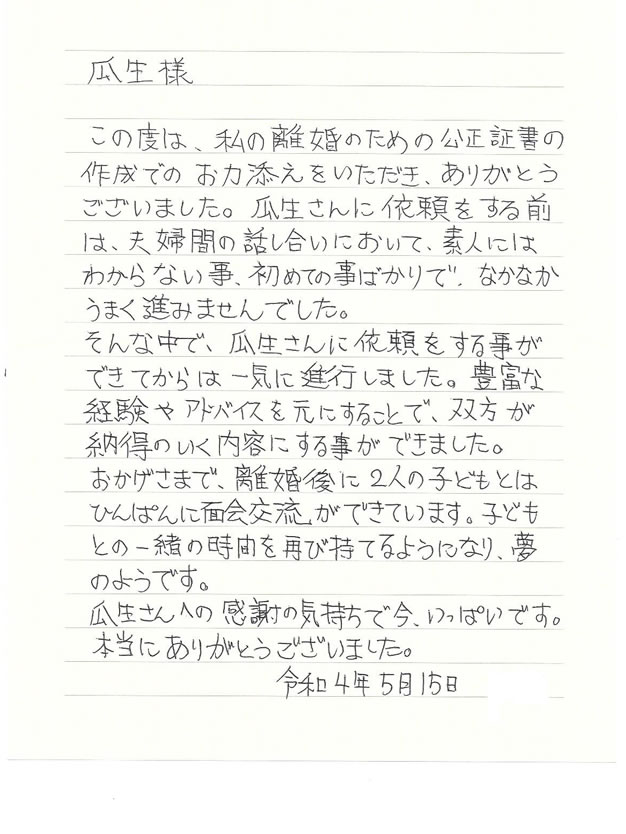 瓜生様
この度は、私の離婚のための公正証書の
作成でのお力添えをいただき、ありがとう
ございました。瓜生さんに依頼をする前
は、夫婦間の話し合いにおいて、素人には
わからない事、初めての事ばかりで、なかなか
うまく進みませんでした。
そんな中で、瓜生さんに依頼をする事が
できてからは一気に進行しました。豊富な
経験やアドバイスを元にすることで、双方が
納得のいく内容にする事ができました。
おかげさまで、離婚後に2人の子どもとは
ひんぱんに面会交流ができています。子ども
との一緒の時間を再び持てるようになり、夢
のようです。
瓜生さんへの感謝の気持ちで今、いっぱいです。
本当にありがとうございました。
令和4年5月15日